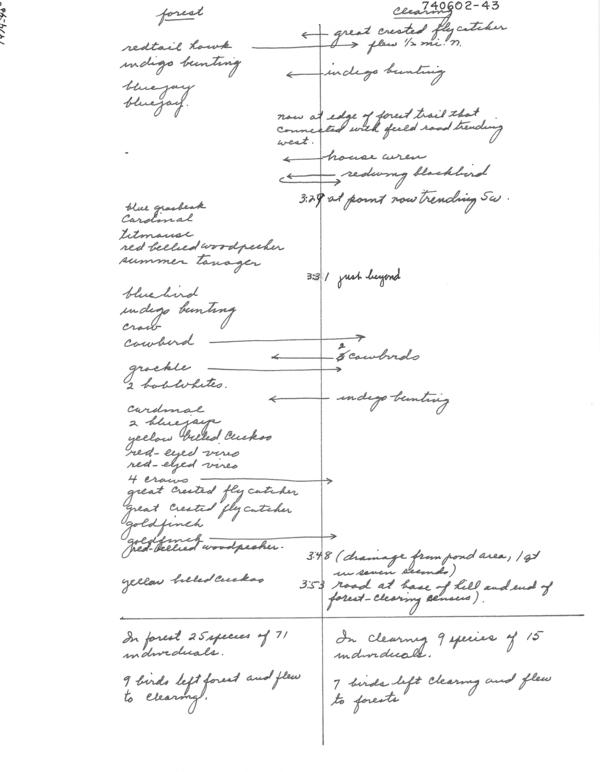 740602-43
forest
Clearing
great crested flycatcher
redtail hawk flew 1/2 mi. n.
indigo bunting
indigo bunting
bluejay
bluejay.
now at edge of forest trail that
connected with field road trending
west.
house wren
redwing blackbird
3:29 at point now trending SW.
blue grosbeak
Cardinal
titmouse
red bellied woodpecker
summer tanager
3:31 just beyond
bluebird
indigo bunting
crow
cowbird
2 cowbirds
grackle
2 bobwhites.
indigo bunting
cardinal
2 bluejays
yellow billed cuckoo
red-eyed vireo
red-eyed vireo
4 crows
great crested flycatcher
great crested flycatcher
goldfinch
goldfinch
red-bellied woodpecker.
3:48 (drainage from pond area, 1 qt
in seven seconds)
yellow billed cuckoo 3:53 road at base of hill and end of
forest-clearing census).
In forest 25 species of 71
individuals.
In clearing 9 species of 15
individuals.
9 birds left forest and flew
to clearing.
7 birds left clearing and flew
to forests